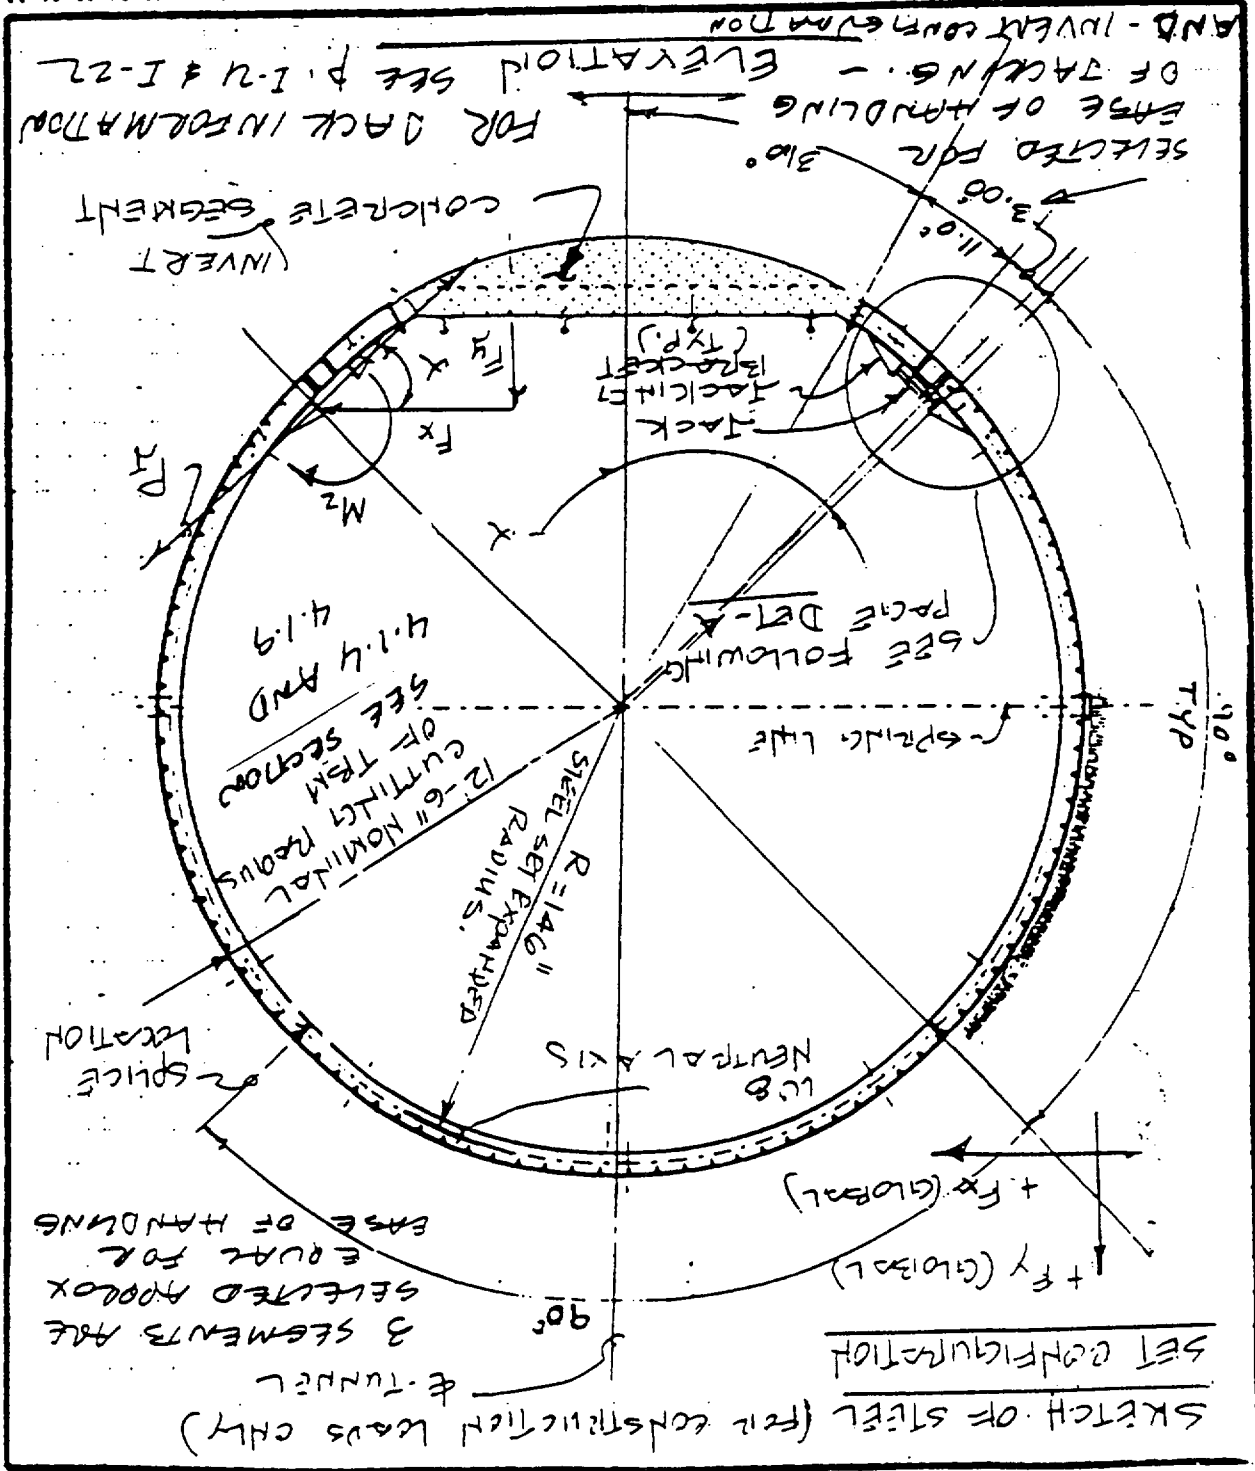 SKETCH OF STEEL (FOR CONSTRUCTION LOADS ONLY)
SET CONFIGURATION
℄ TUNNEL
3 SEGMENTS ARE
SELECTED APPROX
EQUAL FOR
EASE OF HANDLING
90°
+ FY (GLOBAL)
+ FX (GLOBAL)
SPLICE
LOCATION
W8
NEUTRAL AXIS
R = 146"
STEEL SET EXPANDED
RADIUS.
12'-6" NOMINAL
CUTTING RADIUS
OF TBM
SEE SECTION
4.1.4 AND
4.1.9
90°
TYP
SPRING LINE
SEE FOLLOWING
PAGE DET-A
α
MZ
FX
Fy
α
JACK
JACKING
BRACKET
(TYP.)
INVERT
CONCRETE SEGMENT
11.0°
3.00°
310°
SELECTED FOR
EASE OF HANDLING
OF JACKING. -
AND - INVERT CONFIGURATION
FOR JACK INFORMATION
SEE p. I-21 & I-22
ELEVATION